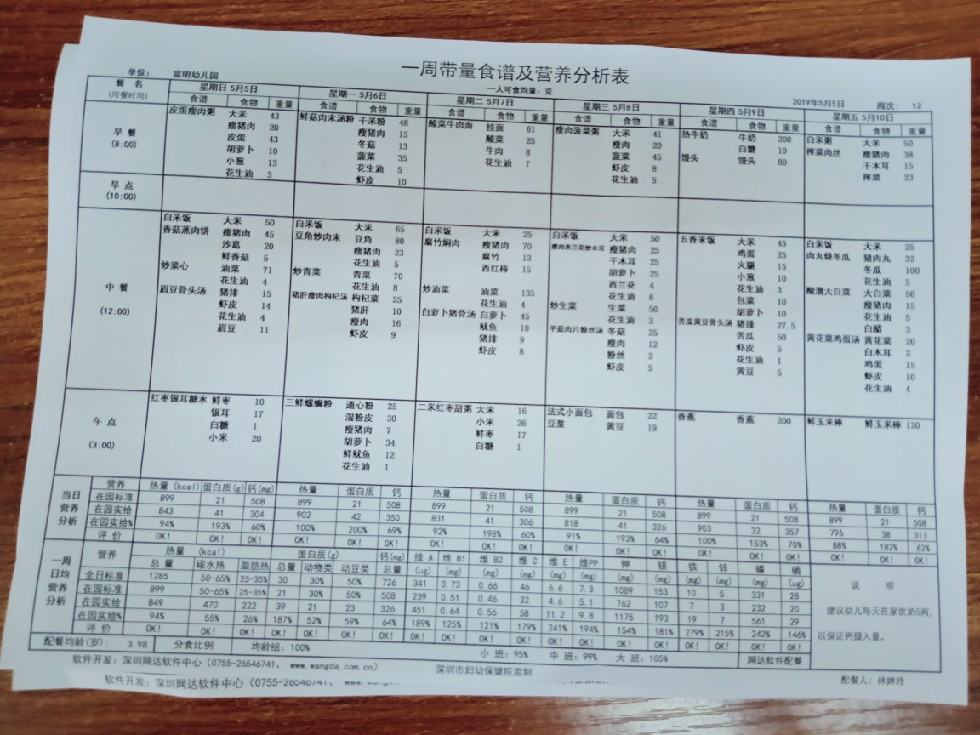 一周带量食谱及营养分析表
单位: 富明幼儿园 一人可食均量: 克 2019年5月5日 周次: 12
餐名 (用餐时间) 星期日 5月5日 星期一 5月6日 星期二 5月7日 星期三 5月8日 星期四 5月9日 星期五 5月10日
食谱 食物 重量 食谱 食物 重量 食谱 食物 重量 食谱 食物 重量 食谱 食物 重量 食谱 食物 重量
早餐 (8:00)
皮蛋瘦肉粥 大米 43
瘦猪肉 20
皮蛋 43
胡萝卜 10
小葱 13
花生油 3
鲜菇肉末汤粉 干米粉 48
瘦猪肉 15
冬菇 13
菠菜 35
花生油 5
虾皮 10
酸菜牛肉面 挂面 61
酸菜 25
牛肉 8
花生油 7
瘦肉菠菜粥 大米 41
瘦肉 20
菠菜 45
虾皮 8
花生油 5
热牛奶 牛奶 200
白糖 10
馒头 馒头 80
白米粥 大米 50
榨菜肉丝 瘦猪肉 38
干木耳 15
榨菜 23
早点 (10:00)
中餐 (12:00)
白米饭 大米 50
香菇蒸肉饼 瘦猪肉 45
沙葛 20
鲜香菇 5
炒菜心 油菜 71
花生油 4
眉豆骨头汤 猪排 15
虾皮 14
花生油 4
眉豆 11
白米饭 大米 65
豆角炒肉末 豆角 80
瘦猪肉 23
花生油 5
炒青菜 青菜 70
花生油 8
猪肝瘦肉枸杞汤 枸杞菜 25
猪肝 10
瘦肉 16
虾皮 9
白米饭 大米 25
腐竹焖肉 瘦猪肉 70
腐竹 12
西红柿 15
炒油菜 油菜 135
花生油 4
白萝卜猪骨汤 白萝卜 45
鱿鱼 10
猪排 9
虾皮 8
白米饭 大米 50
瘦猪肉 25
干木耳 25
胡萝卜 25
西兰花 4
花生油 6
炒生菜 生菜 50
花生油 3
平菇肉片粉丝汤 冬菇 25
瘦肉 12
粉丝 2
虾皮 5
五香米饭 大米 45
鸡蛋 25
火腿 15
小葱 10
花生油 3
包菜 10
胡萝卜 10
苦瓜黄豆骨头汤 猪排 27.5
苦瓜 50
虾皮 5
花生油 1
黄豆 5
白米饭 大米 25
肉丸烧冬瓜 猪肉丸 32
冬瓜 100
花生油 5
酸溜大白菜 大白菜 50
瘦猪肉 15
花生油 5
白醋 3
黄花菜鸡蛋汤 黄花菜 20
白木耳 2
鸡蛋 15
虾皮 10
花生油 4
午点 (3:00)
红枣银耳糖水 鲜枣 10
银耳 17
白糖 1
小米 20
三鲜螺蛳粉 通心粉 25
湿粉皮 30
瘦猪肉 7
胡萝卜 34
鲜鱿鱼 12
花生油 1
二米红枣甜粥 大米 16
小米 26
鲜枣 17
白糖 1
法式小面包 面包 22
豆浆 黄豆 19
香蕉 香蕉 200
鲜玉米棒 鲜玉米棒 120
当日营养分析 营养 热量(kcal) 蛋白质(g) 钙(mg) 热量 蛋白质 钙 热量 蛋白质 钙 热量 蛋白质 钙 热量 蛋白质 钙 热量 蛋白质 钙
在园标准 899 21 508 899 21 508 899 21 508 899 21 508 899 21 508 899 21 508
在园实给 843 41 304 902 42 350 831 41 306 818 41 326 903 32 357 795 38 313
在园实给% 94% 193% 60% 100% 200% 69% 92% 198% 60% 91% 193% 64% 100% 153% 70% 88% 182% 62%
评价 OK! OK! OK! OK! OK! OK! OK! OK! OK! OK! OK! OK! OK! OK! OK! OK! OK! OK!
一周日均营养分析 营养 热量 (kcal) 蛋白质(g) 钙(mg) 维A 维B1 维B2 维D 维E 维PP 钾 镁 铁 锌 磷 硒 说明
总量 碳水热 脂肪热 总量 动物类 动豆类 总量 (ug) (mg) (mg) (ug)
全日标准 1285 50-65% 25-35% 30 30% 50% 726 341 0.73 0.66 46 6.6 7.3 1089 153 10 5 331 28
在园标准 899 50-65% 25-35% 21 30% 50% 508 239 0.51 0.46 32 4.6 5.1 762 107 7 3 232 20
在园实给 849 470 222 39 21 23 326 451 0.64 0.56 58 11.2 9.8 1175 193 19 7 561 29
在园实给% 94% 55% 26% 187% 52% 59% 64% 189% 125% 121% 179% 241% 194% 154% 181% 279% 215% 242% 146%
评价 OK! OK! OK! OK! OK! OK! OK! OK! OK! OK! OK! OK! OK! OK! OK! OK! OK! OK! OK!
建议幼儿每天在家饮奶5两,
以保证钙摄入量。
配餐均龄(岁): 3.98 分食比例 均龄组: 100% 小班: 95% 中班: 99% 大班: 105% 网达软件配餐
软件开发: 深圳网达软件中心 (0755-26646741、 www.wangda.com.cn) 深圳市妇幼保健院监制 配餐人: 林婵玲
软件开发: 深圳网达软件中心 (0755-26646741、